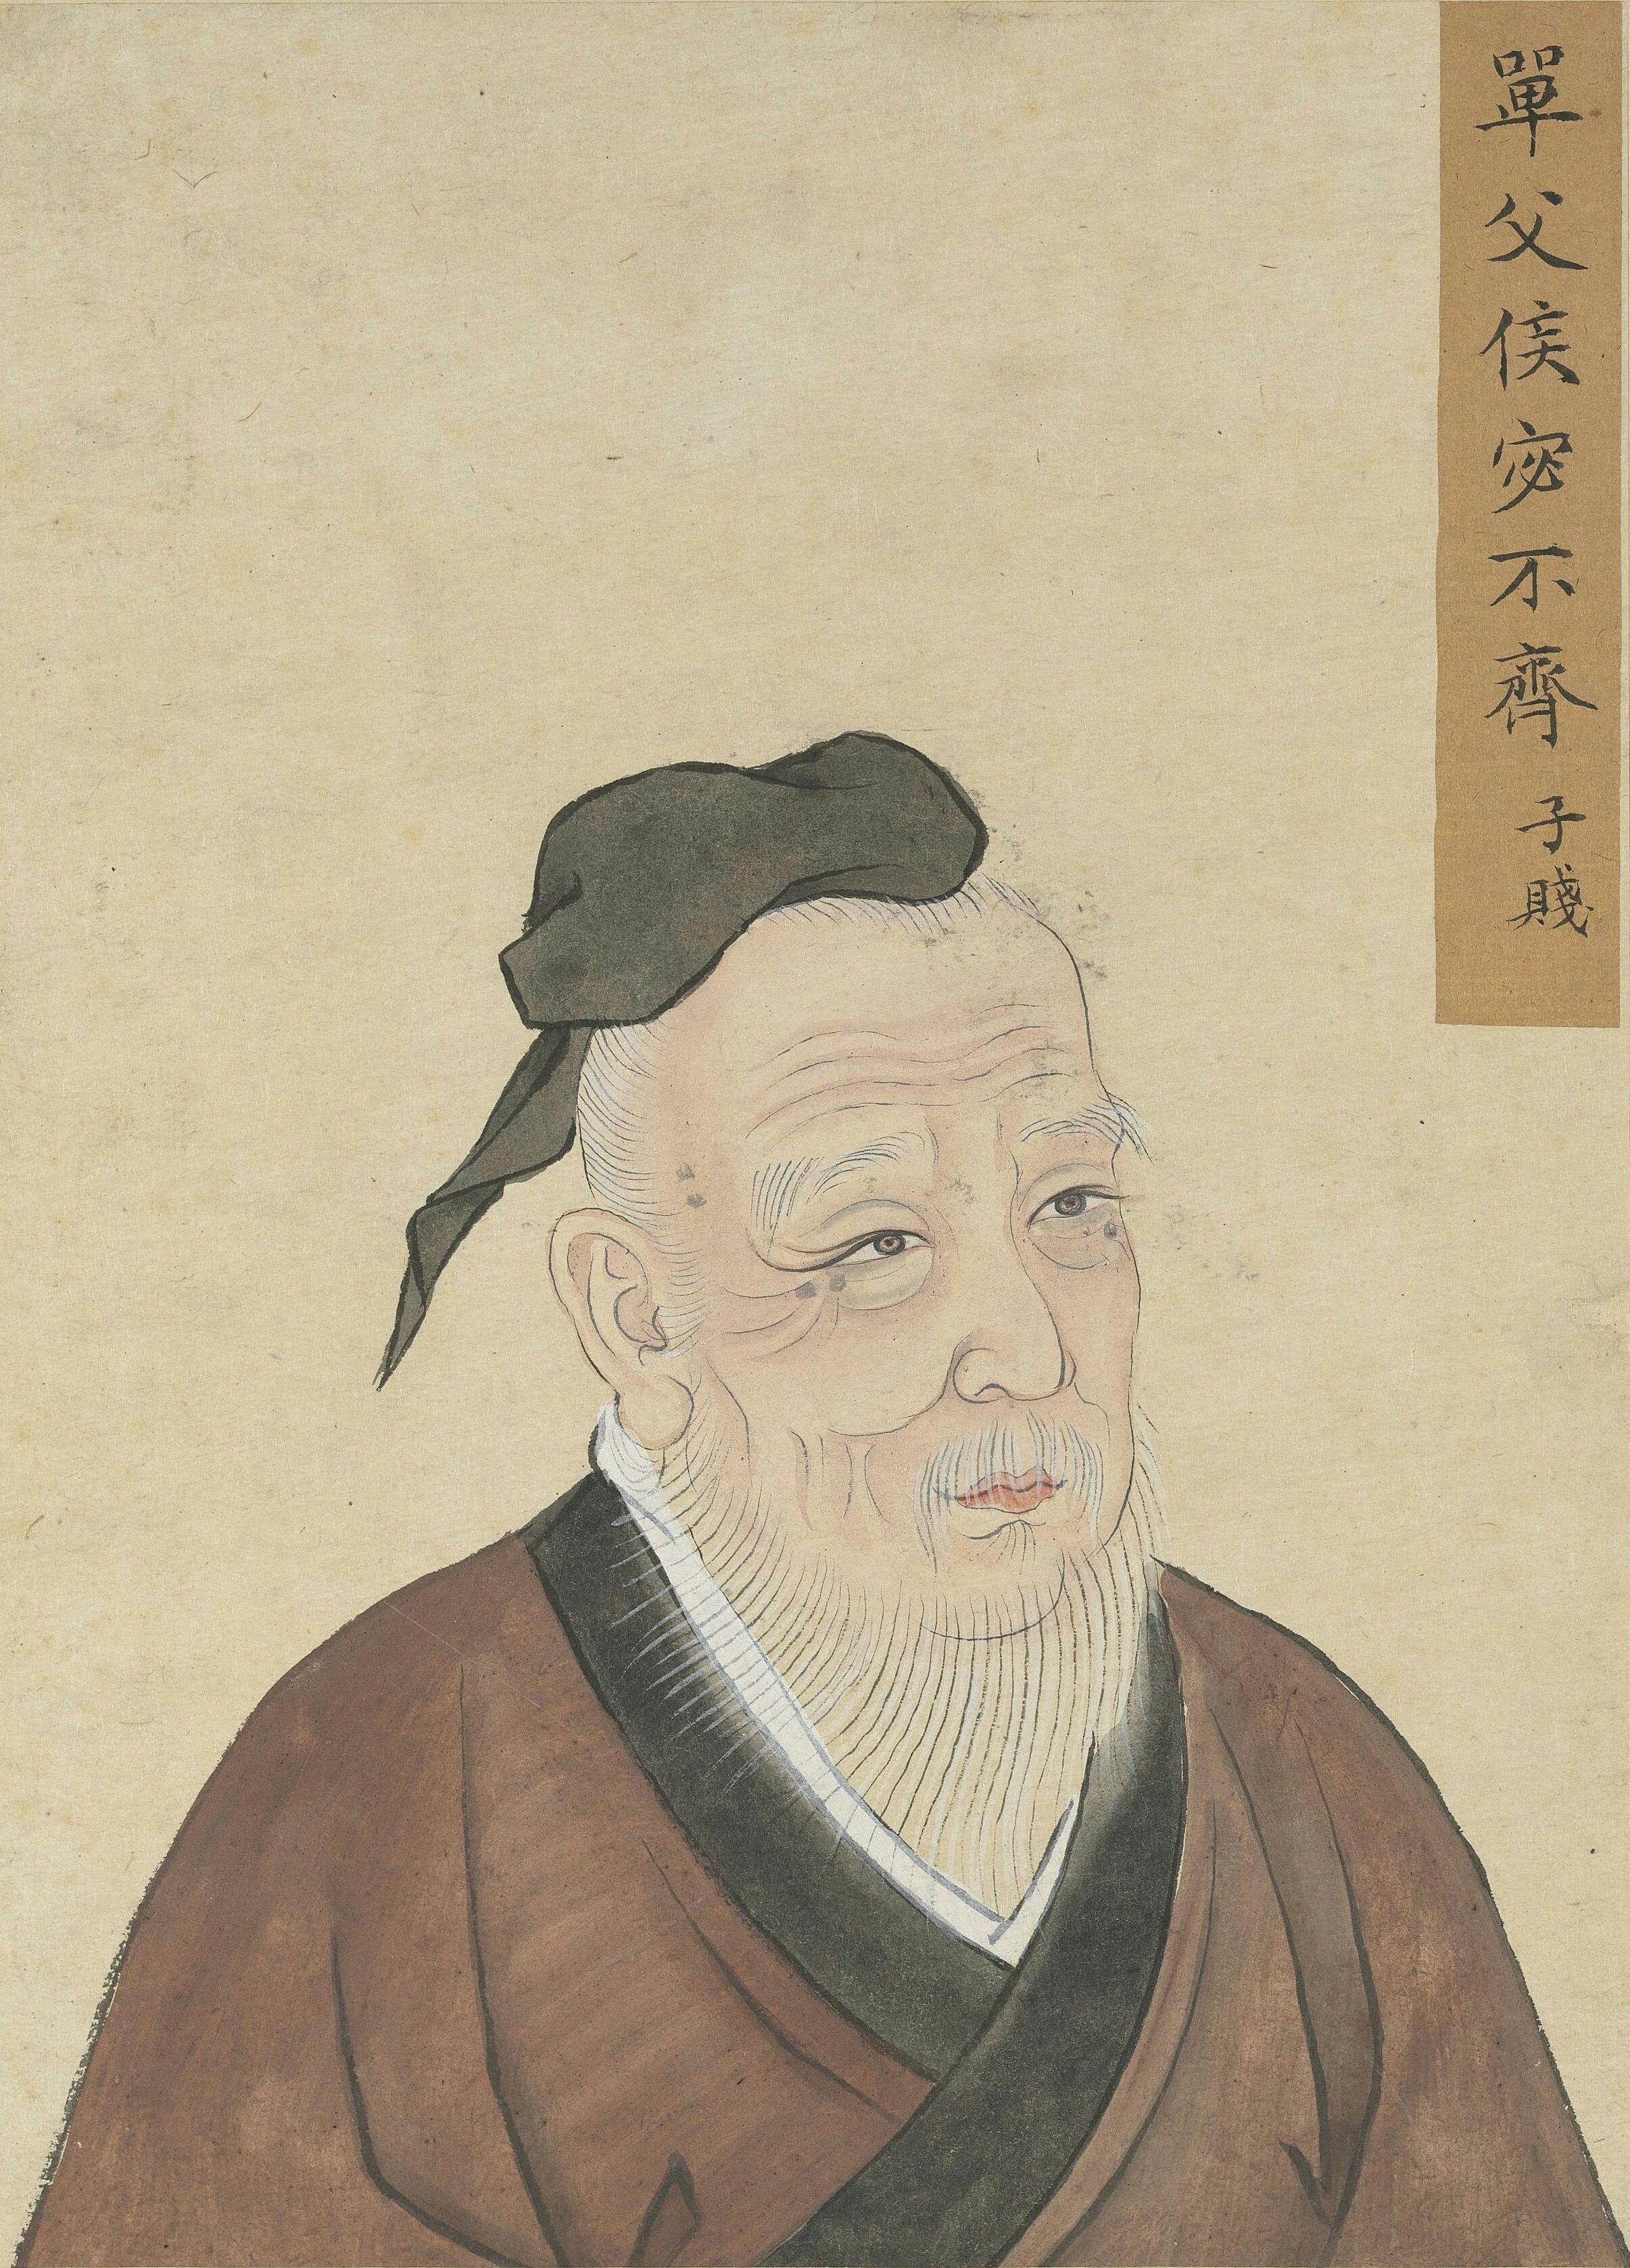 單父侯宓不齊 子賤